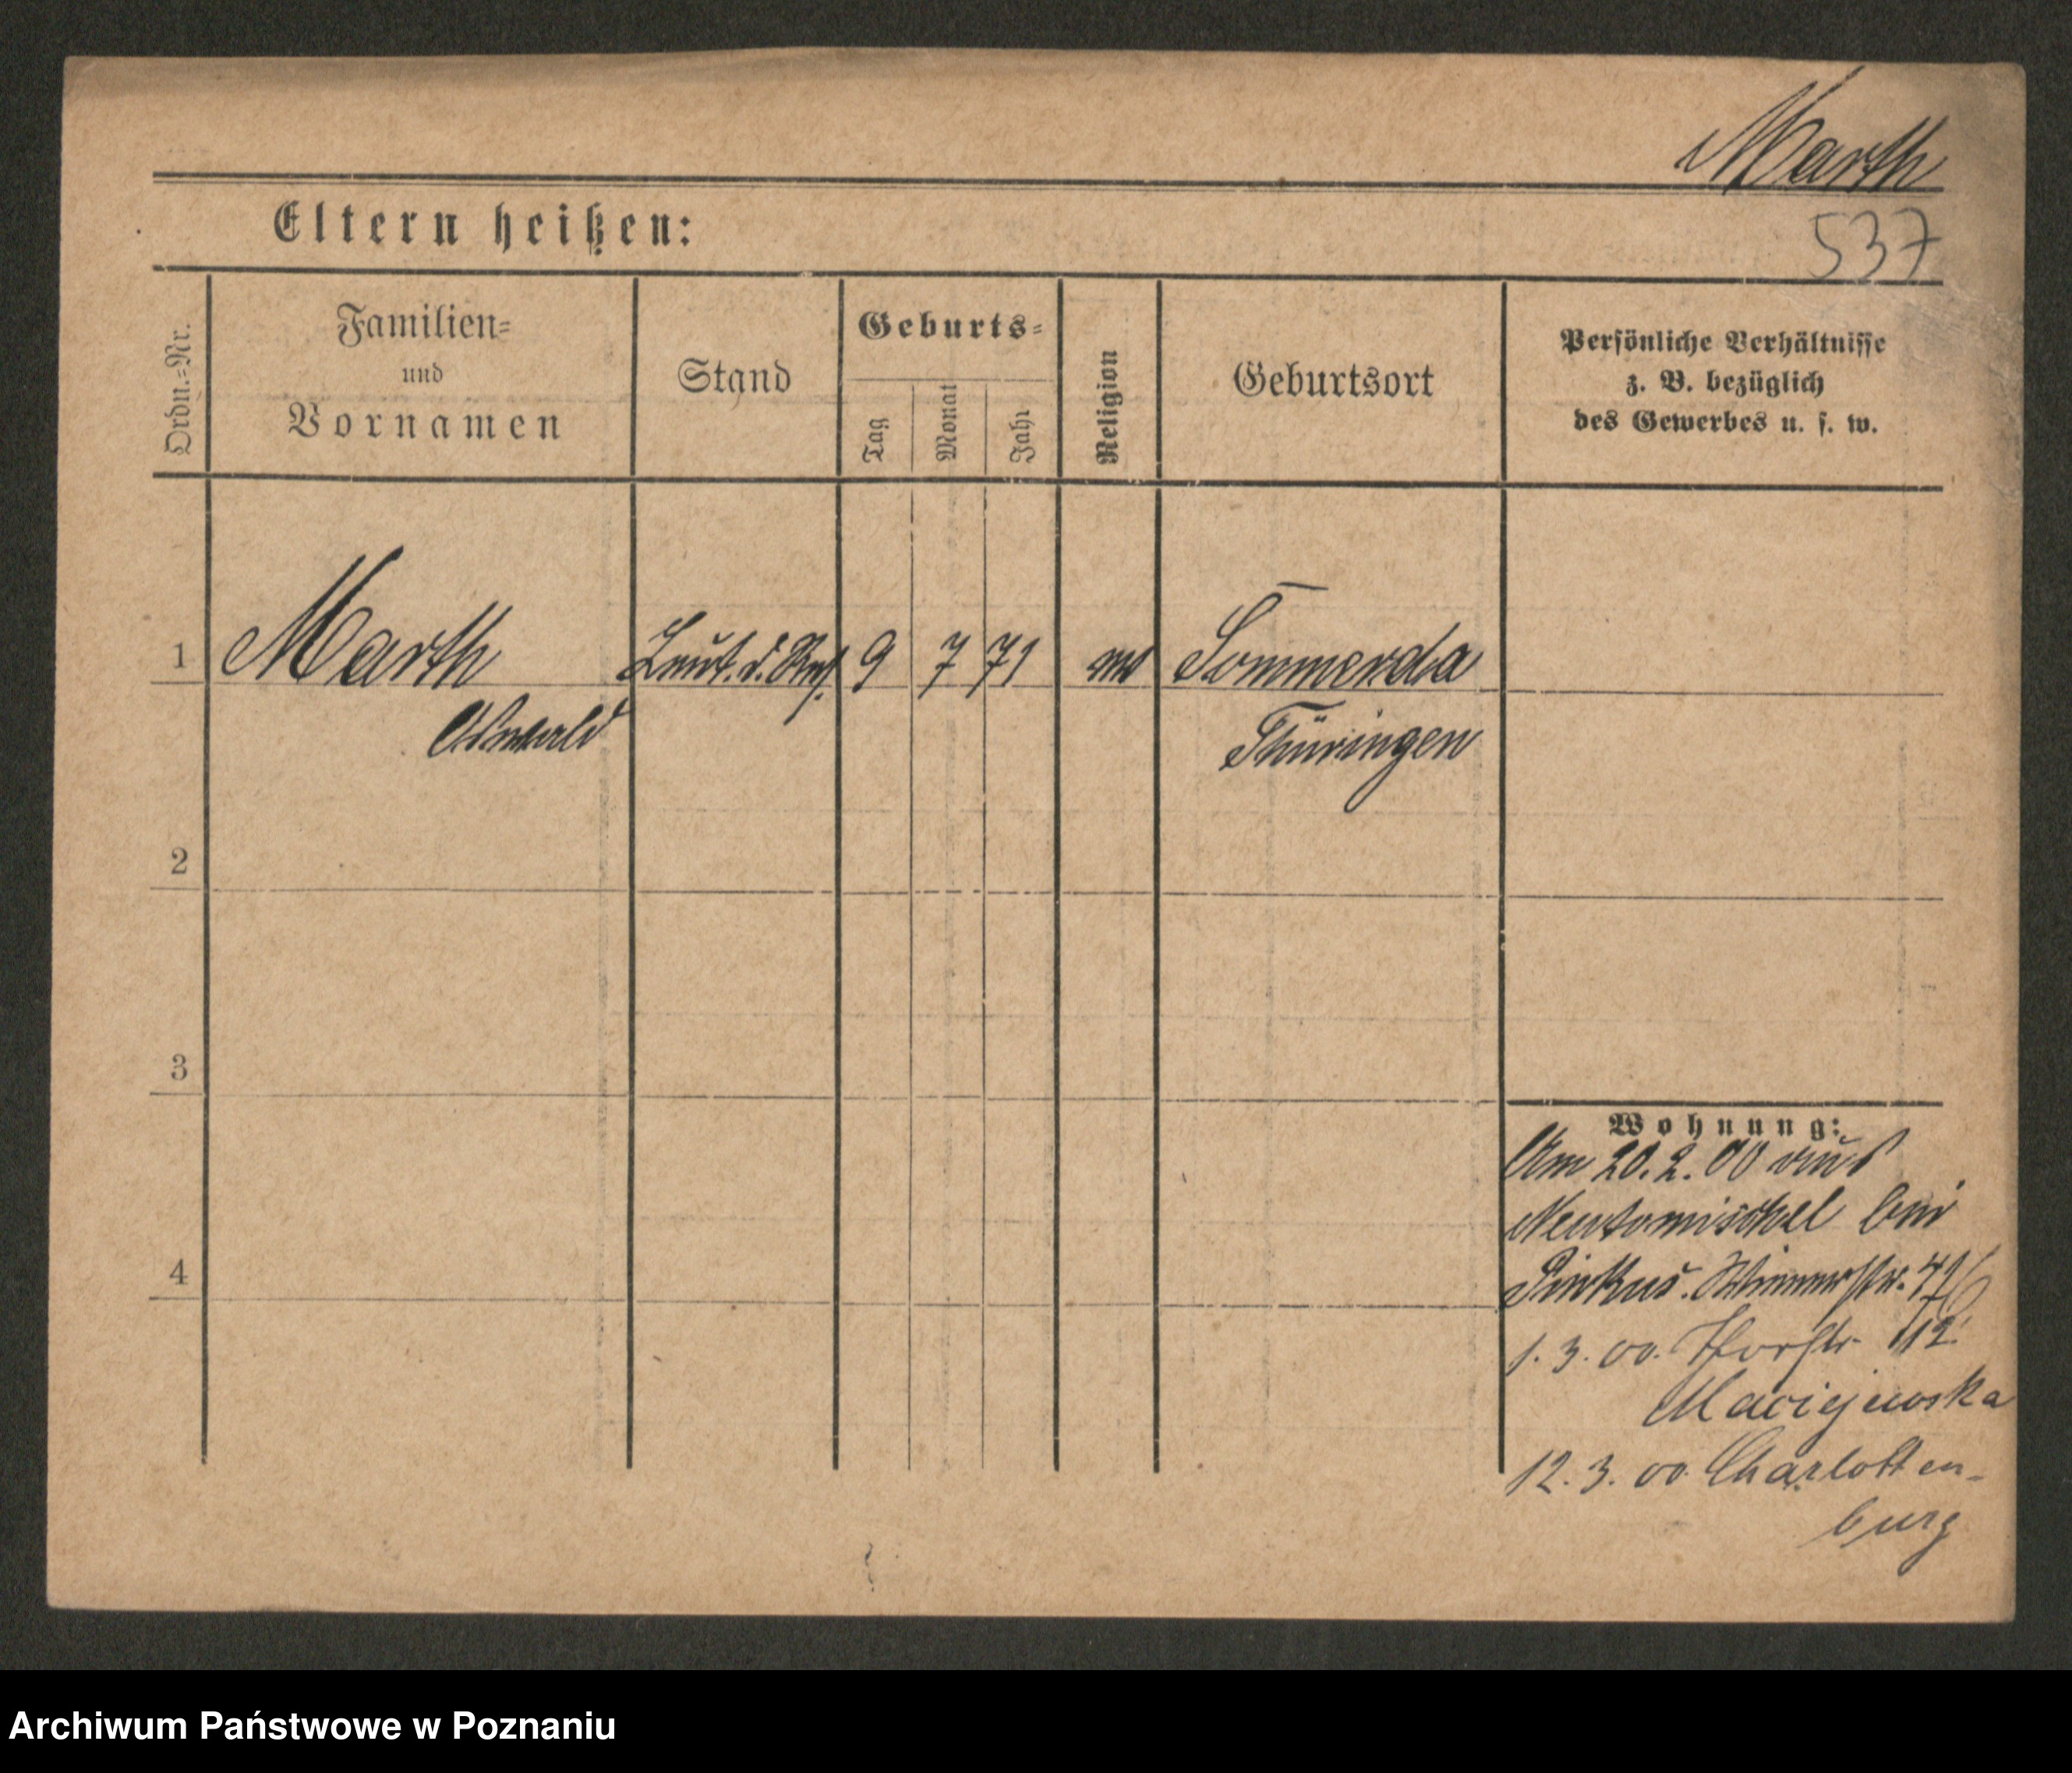 Marth
537
Eltern heißen:
Ordn.-Nr.
Familien-
und
Vornamen
Stand
Geburts-
Tag
Monat
Jahr
Religion
Geburtsort
Persönliche Verhältnisse
z. B. bezüglich
des Gewerbes u. s. w.
1 Marth Leut. d. Res. 9 7 71 ev Sömmerda
Oswald Thüringen
2
3
4
Wohnung:
Am 20.2.00 aus
Neutomischel bei
Pinkus.
1.3.00. 112
Maciejewska
12.3.00 Charlotten-
burg
Archiwum Państwowe w Poznaniu